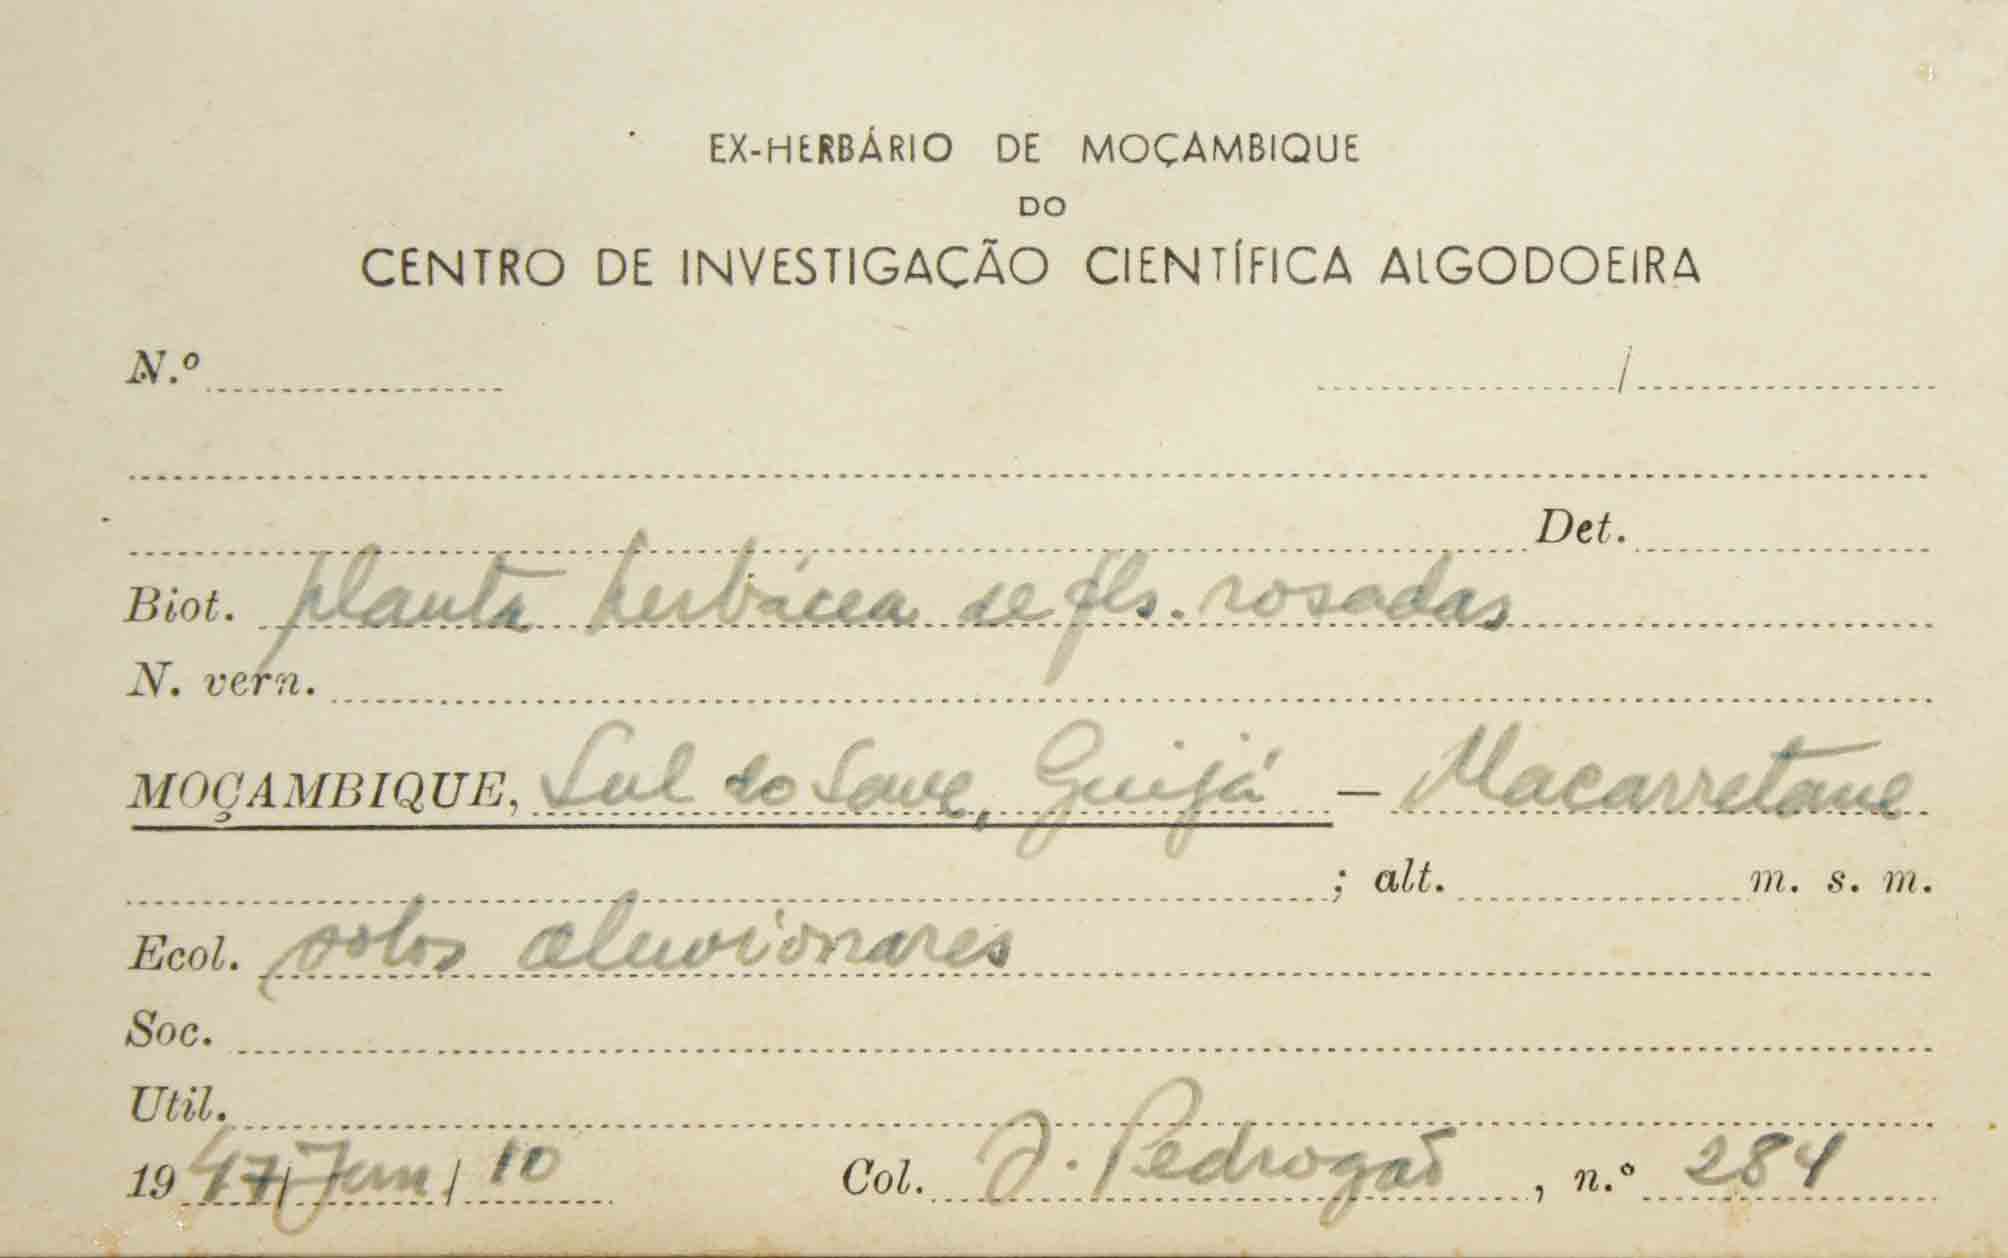 EX-HERBÁRIO DE MOÇAMBIQUE
DO
CENTRO DE INVESTIGAÇÃO CIENTÍFICA ALGODOEIRA
N.º /
Det.
Biot. planta herbácea de fls. rosadas
N. vern.
MOÇAMBIQUE, Sul do Save, Guijá — Macarretane
; alt. m. s. m.
Ecol. solos aluvionares
Soc.
Util.
1947/Jun/10 Col. J. Pedrogão, n.º 284